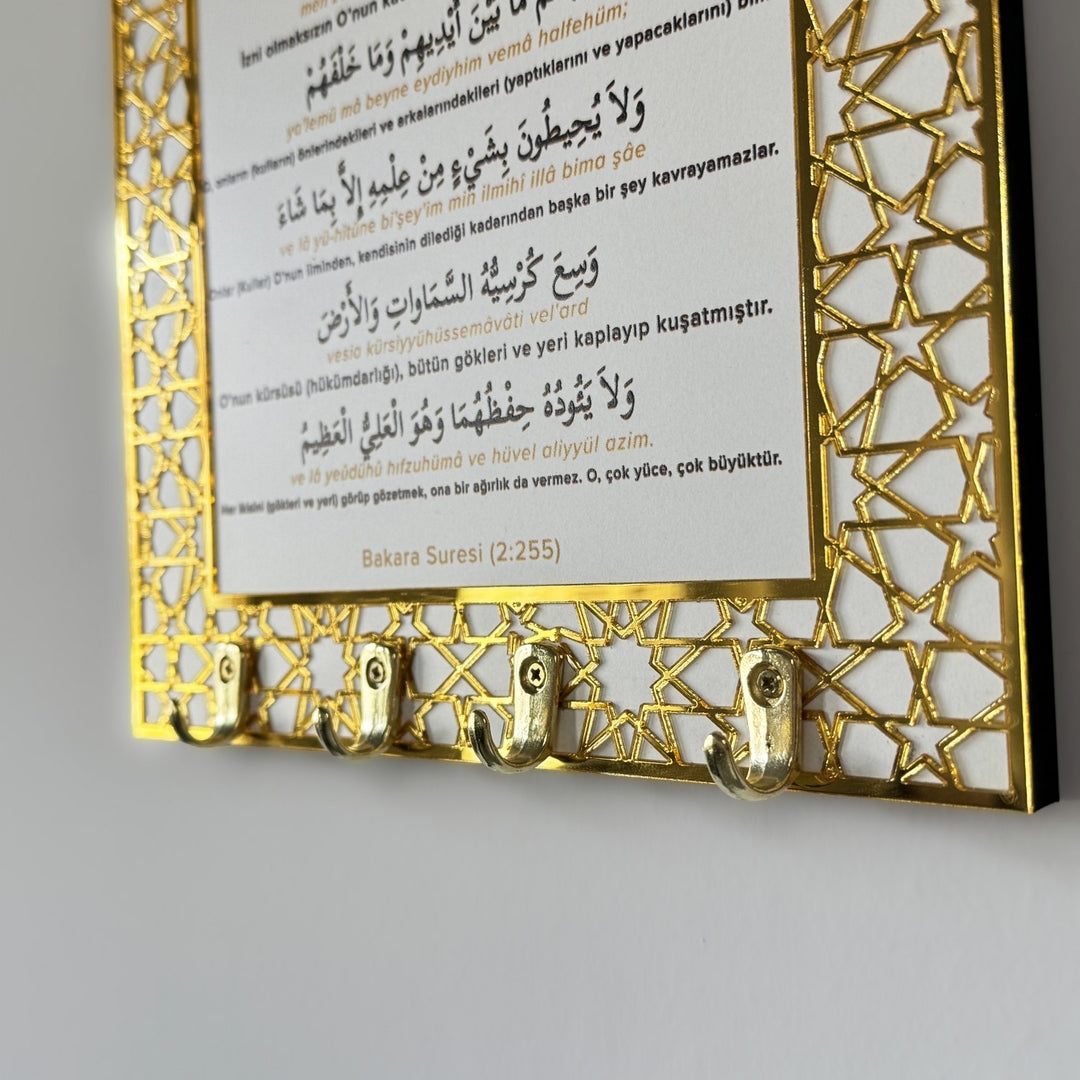 İzni olmaksızın O'nun
مَا بَيْنَ أَيْدِيهِمْ وَمَا خَلْفَهُمْ
ya'lemü mâ beyne eydiyhim vemâ halfehüm;
O, onların (kulların) önlerindekileri ve arkalarındakileri (yaptıklarını ve yapacaklarını)
وَلاَ يُحِيطُونَ بِشَيْءٍ مِنْ عِلْمِهِ إِلاَّ بِمَا شَاءَ
ve lâ yü-hîtûne bi'şey'im min ilmihî illâ bima şâe
Onlar (Kullar) O'nun ilminden, kendisinin dilediği kadarından başka bir şey kavrayamazlar.
وَسِعَ كُرْسِيُّهُ السَّمَاوَاتِ وَالأَرْضَ
vesia kürsiyyühüssemâvâti vel'ard
O'nun kürsüsü (hükümdarlığı), bütün gökleri ve yeri kaplayıp kuşatmıştır.
وَلاَ يَئُودُهُ حِفْظُهُمَا وَهُوَ الْعَلِيُّ الْعَظِيمُ
ve lâ yeûdühû hıfzuhümâ ve hüvel aliyyül azim.
Her ikisini (gökleri ve yeri) görüp gözetmek, ona bir ağırlık da vermez. O, çok yüce, çok büyüktür.
Bakara Suresi (2:255)